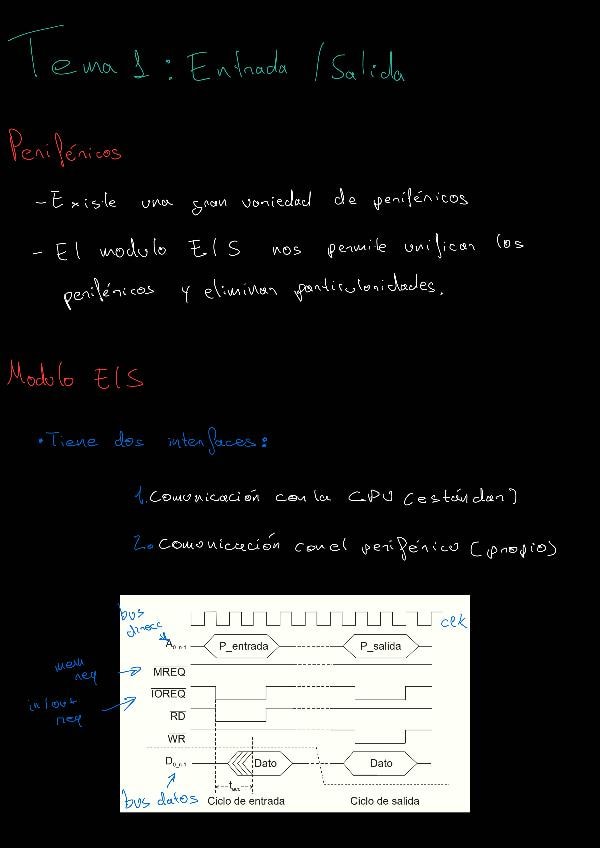 Tema 1: Entrada /Salida
Periféricos
- Existe una gran variedad de periféricos
- El modulo E/S nos permite unificar los
periféricos y eliminar particularidades.
Modulo E/S
• Tiene dos interfaces:
1. Comunicación con la CPU (estándar)
2. Comunicación con el periférico (propio)
bus
direcc
clk
A0_n-1
P_entrada
P_salida
mem
req
MREQ
in/out
req
IOREQ
RD
WR
D0_n-1
Dato
Dato
bus datos
tacc
Ciclo de entrada
Ciclo de salida